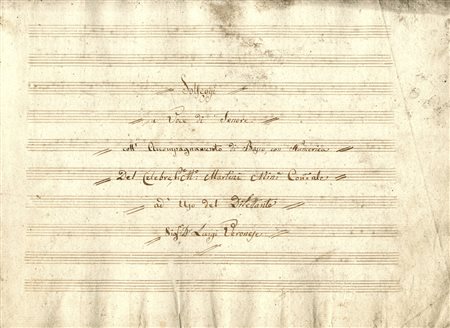 Solfeggi
a Voce di Tenore
coll' Accompagnamento di Basso, con Numerica
Del Celebre P. M.º Martini Min: Conv:ale
ad Uso del Dilettante
Sig.r D. Luigi Veronese